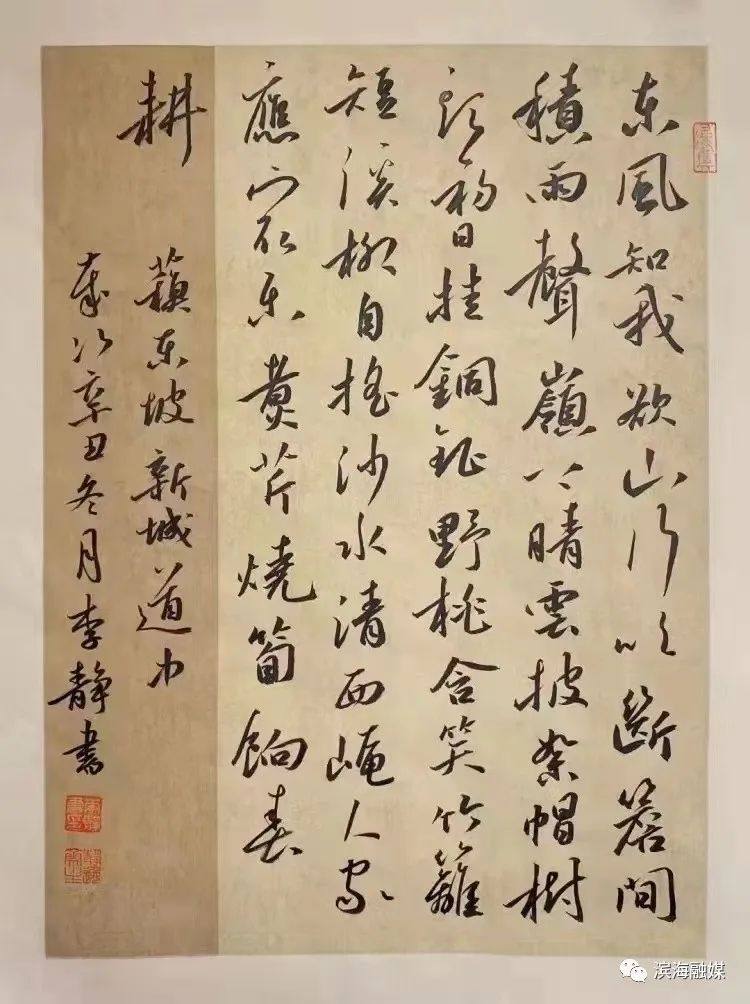 東風知我欲山行吹斷簷間
積雨聲嶺上晴雲披絮帽樹
頭初日挂銅鉦野桃含笑竹籬
短溪柳自搖沙水清西崦人家
應最樂煮芹燒筍餉春
耕
蘇東坡新城道中
歲次辛丑冬月李靜書
滨海融媒